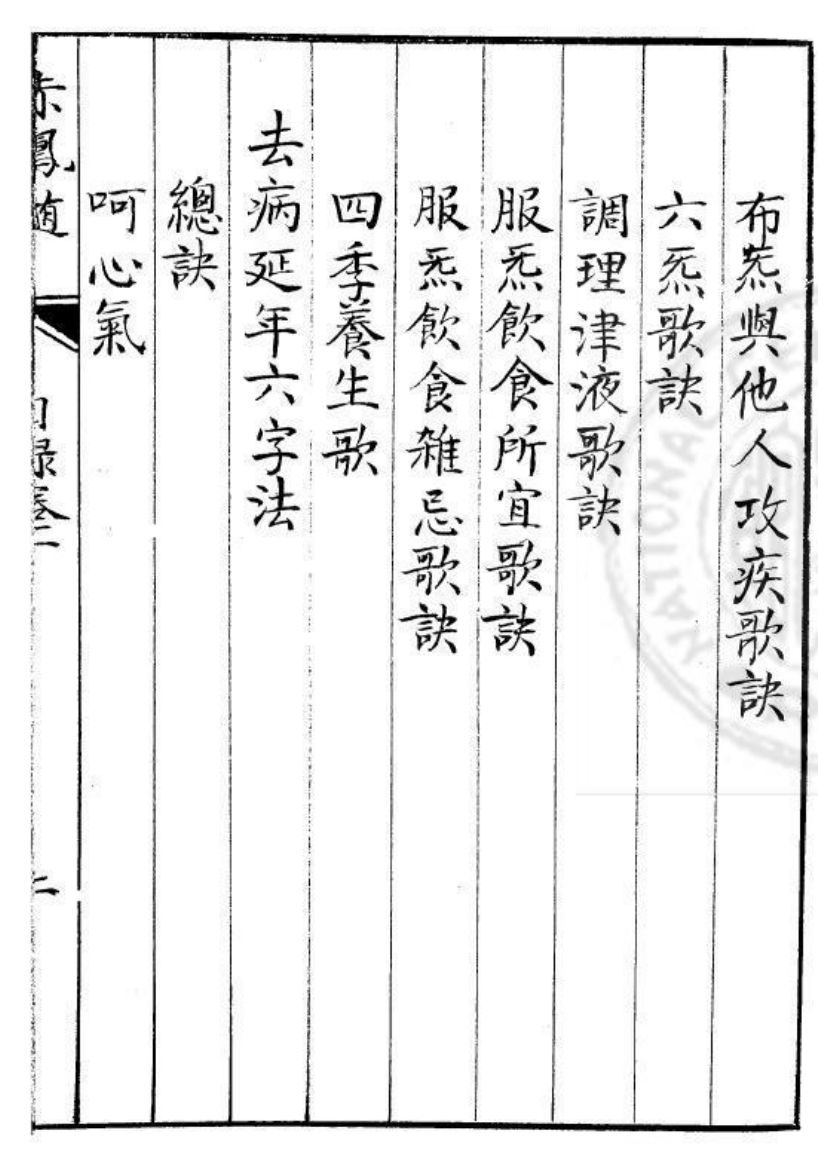 布炁與他人攻疾歌訣
六炁歌訣
調理津液歌訣
服炁飲食所宜歌訣
服炁飲食雜忌歌訣
四季養生歌
去病延年六字法
總訣
呵心氣
赤鳳髓
目録卷二
二
NATIONAL